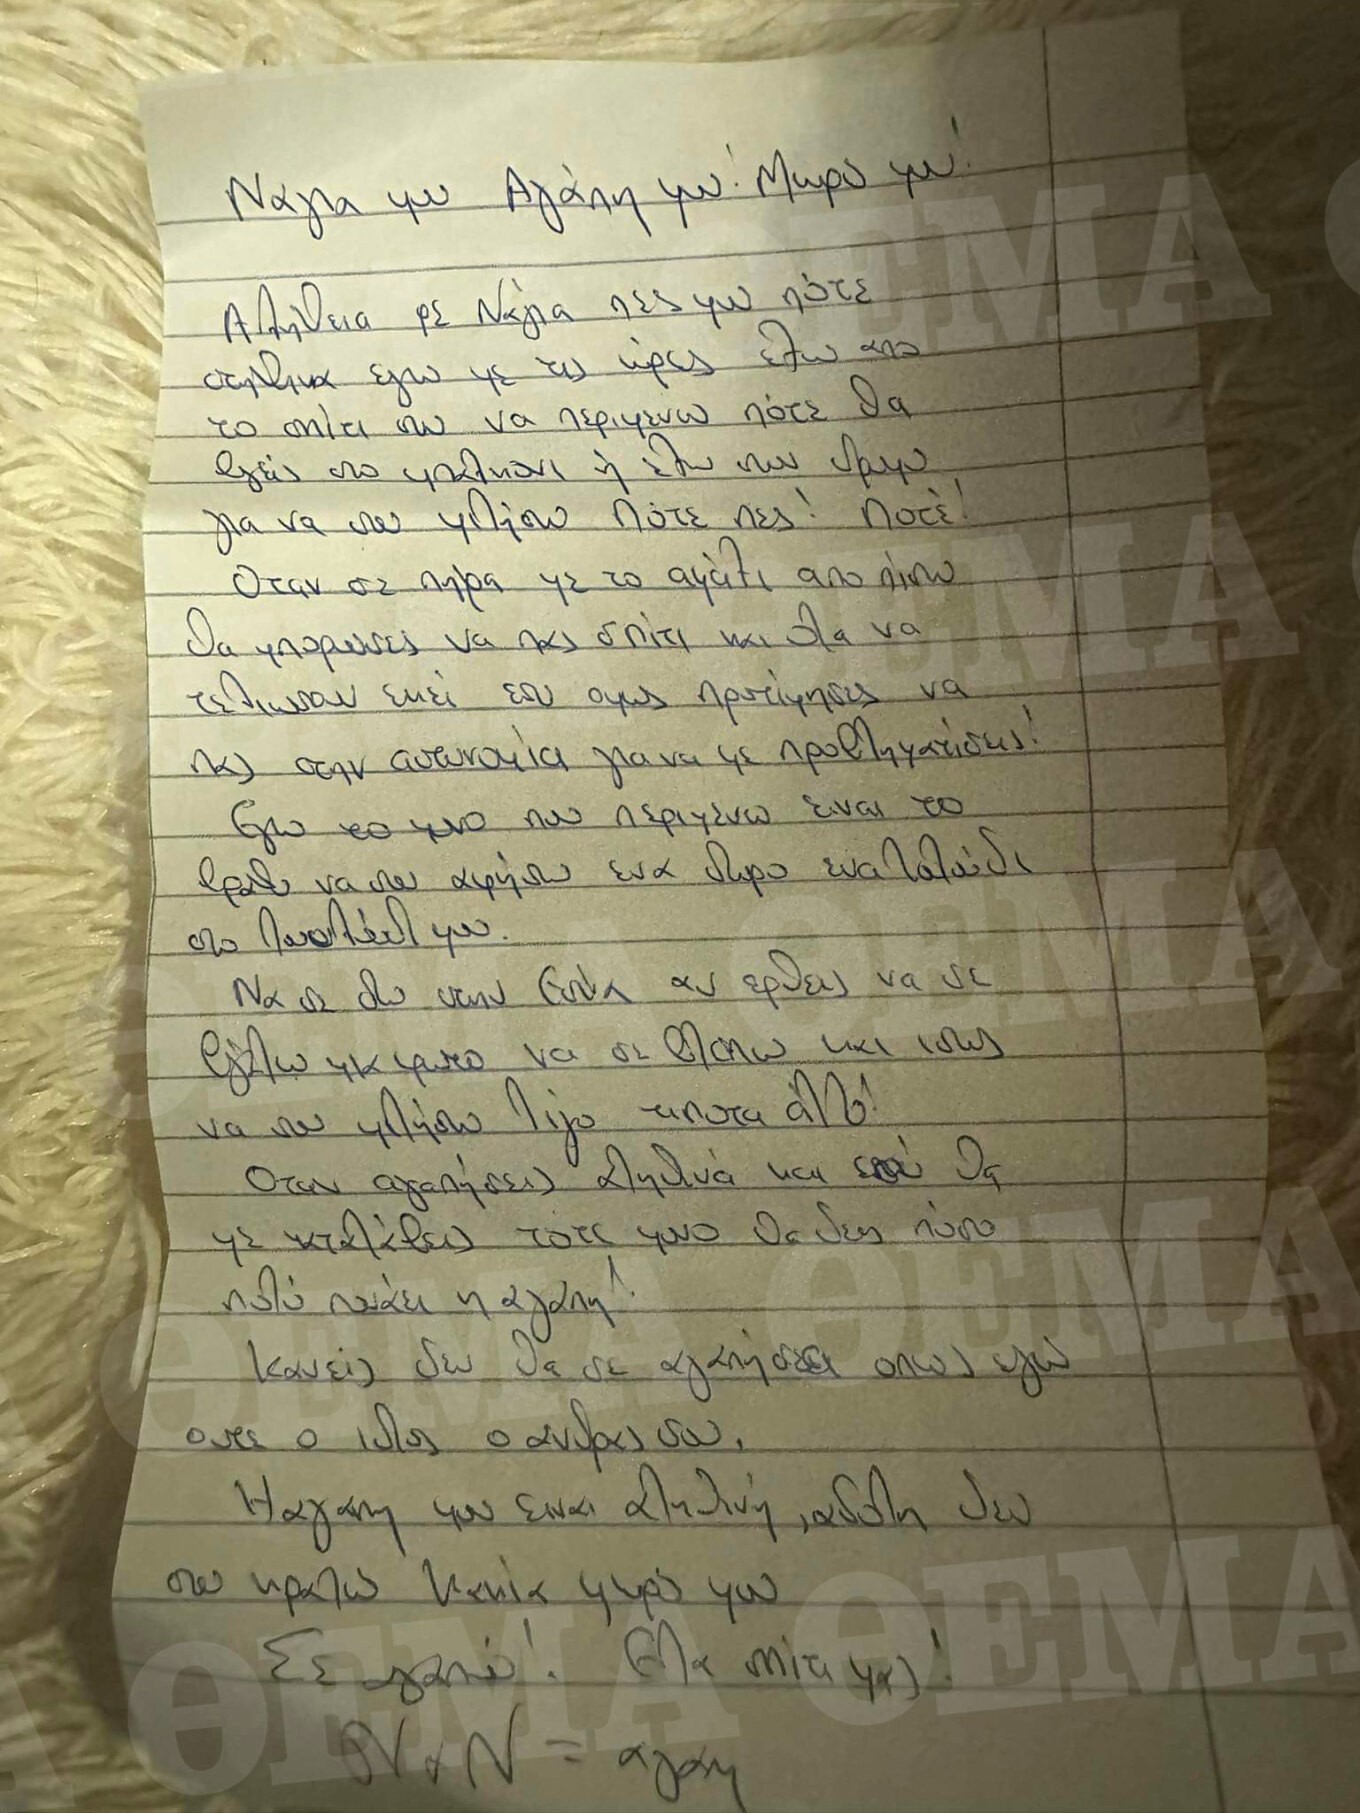 Νάγια μου Αγάπη μου! Μωρό μου!
Αλήθεια ρε Νάγια πες μου πότε
στήθηκα εγω με τις ώρες έξω απο
το σπίτι σου να περιμενω πότε θα
βγείς στο μπαλκόνι ή έξω στον δρόμο
για να σου μιλήσω Πότε πες! Ποτέ!
Οταν σε πήρα με το αμάξι απο πίσω
θα μπορουσες να πας σπίτι και όλα να
τελιωσουν εκεί εσυ ομως προτίμησες να
πας στην αστυνομία για να με προβληματίσεις!
Εγω το μονο που περιμένω ειναι το
βράδυ να σου αφήσω ενα δωρο ενα λουλούδι
στο λουλούδι μου.
Να σε δω στην αν ερθεις να σε
βγάλω μια φωτο να σε βλεπω και ισως
να σου μιλήσω λίγο τιποτα άλλο!
Οταν αγαπήσεις αληθινά και εσύ θα
με καταλάβεις τότε μονο θα δεις πόσο
πολύ πονάει η αγάπη!
Κανείς δεν θα σε αγαπήσει οπως εγώ
ουτε ο ιδιος ο ανδρας σου.
Η αγαπη μου ειναι αληθινή, αδόλη δεν
σου κρατώ κακία μωρό μου
Σε αγαπώ! Ελα σπίτι μας!
Ν x Ν = αγαπη
ΘΕΜΑ ΘΕΜΑ
ΘΕΜΑ ΘΕΜΑ
ΘΕΜΑ ΘΕΜΑ
ΘΕΜΑ ΘΕΜΑ
ΘΕΜΑ ΘΕΜΑ